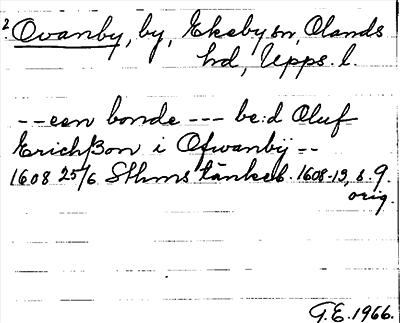 ? Ovanby, by, Ekeby sn, Olands
hd, Upps. l.
-- een bonde --- be:d Oluf
Erichßon i Ofwanbÿ --
1608 25/6 Sthms tänkeb. 1608-13, s. 9.
orig.
G.E. 1966.